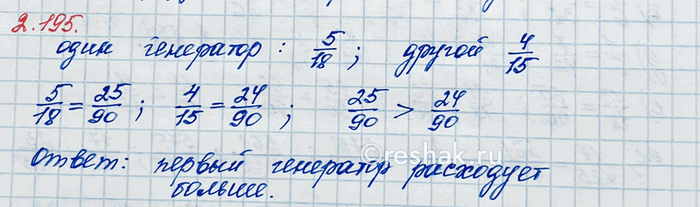 2.195.
один генератор: 5/18; другой 4/15
5/18 = 25/90; 4/15 = 24/90; 25/90 > 24/90
Ответ: первый генератор расходует
больше.
©reshak.ru